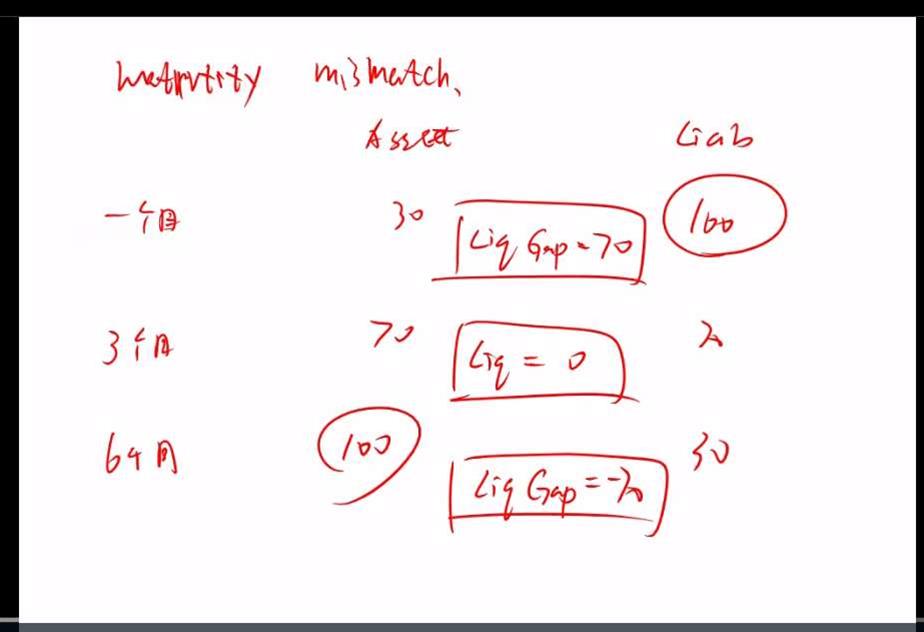 maturity mismatch,
Asset Liab
一个月 30 Liq Gap = 70 100
3个月 70 Liq = 0 70
6个月 100 Liq Gap = -70 30